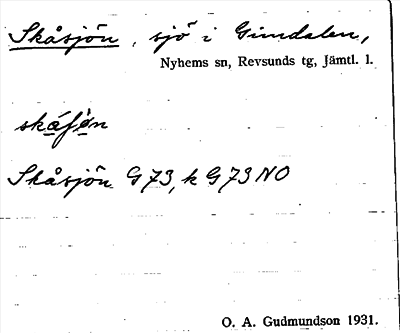 Skåsjön, sjö i Gimdalen,
Nyhems sn, Revsunds tg, Jämtl. l.
Skåsjön G73, k G73NO
O. A. Gudmundson 1931.